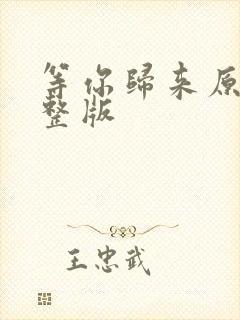 等你歸来原
整版
王忠武